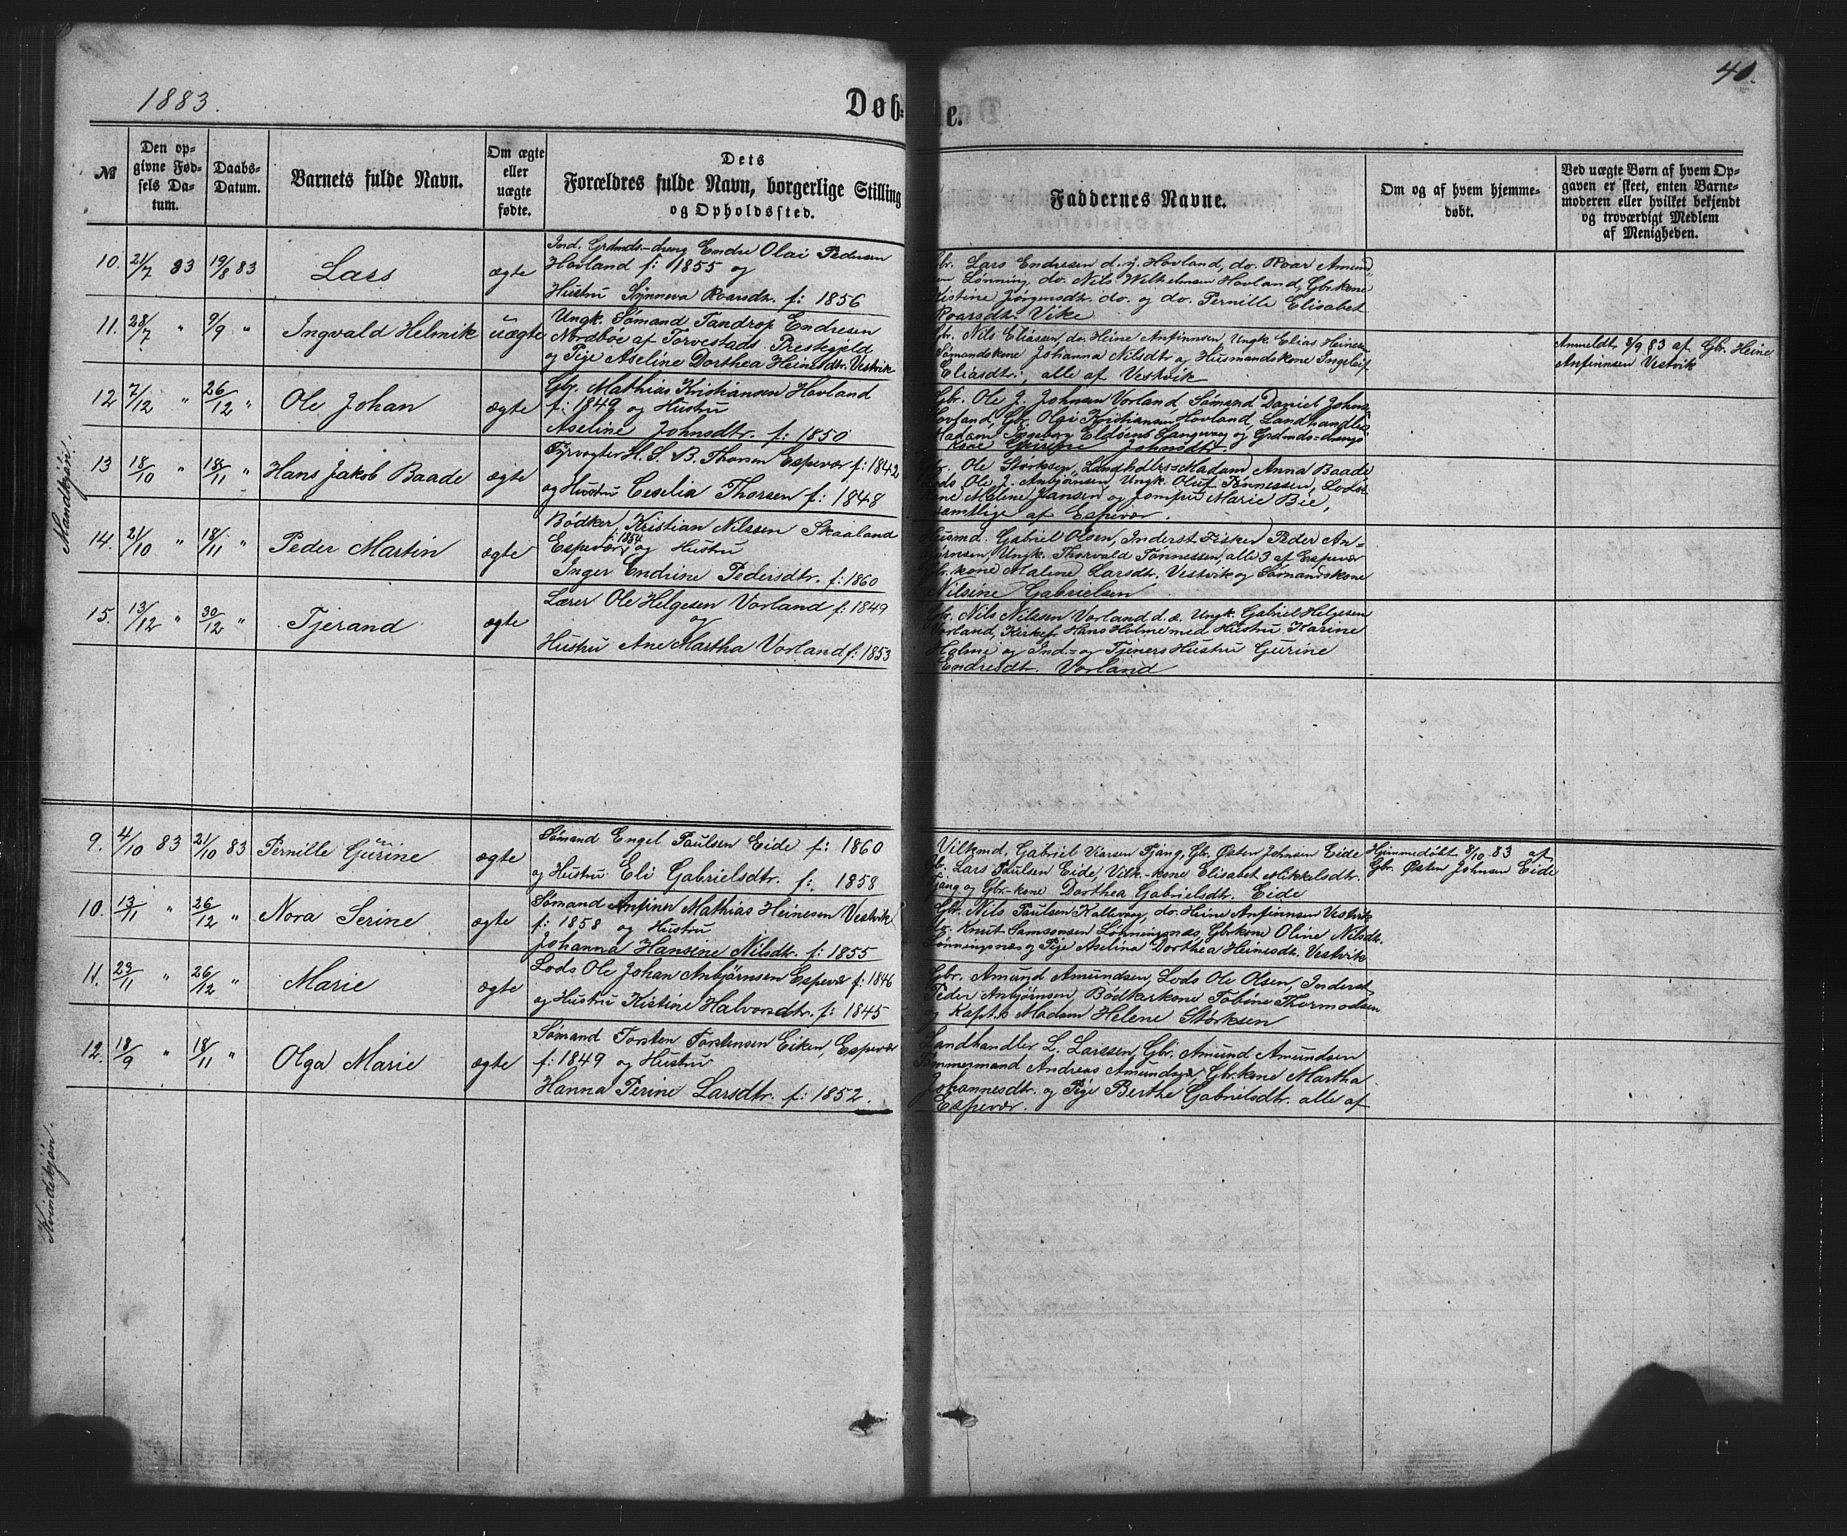 1883.
Døb-
te.
40.
№
Den op-
givne Fød-
sels Da-
tum.
Daabs-
Datum.
Barnets fulde Navn.
Om ægte
eller
uægte
fødte.
Dets
Forældres fulde Navn, borgerlige Stilling
og Opholdssted.
Faddernes Navne.
Om og af hvem hjemme-
døbt.
Ved uægte Børn af hvem Op-
gaven er skeet, enten Barne-
moderen eller hvilket bekjendt
og troværdigt Medlem
af Menigheden.
Mandkjøn.
10. 21/7 83 19/8 83 Lars ægte
Ind. Grdmds-dreng Endre Olai Pedersen
Hovland f: 1855 og
Hustru Synneva Roarsdtr. f: 1856
Gbr. Lars Endresen d.y. Hovland, do. Roar Amund
Lønning, do. Nils Wilhelmsen Hovland, Gbr.kone
Kistine Jørgensdtr. do. og do. Pernille Elisabet
Roarsdtr. Vike
11. 28/7 " 9/9 " Ingvald Helmik uægte
Ungk. Sømand Tandrop Endresen
Nordbøe af Torvestads Prestegjeld
og Pige Aseline Dorthea Heinesdtr. Vestvik
Gbr. Nils Eliassen, do. Heine Anfinnsen Ungk. Elias Heinesen
Sømandskone Johanna Nilsdtr og Husmandskone Ingeleif
Eliasdtr., alle af Vestvik
Anmeldt 8/9 83 af Gbr. Heine
Anfinnsen Vestvik
12 7/12 " 26/12 " Ole Johan ægte
Gbr. Mathias Kristiansen Hovland
f: 1849 og Hustru
Aseline Johnsdtr. f: 1850
Gbr. Ole J. Johnsen Vorland, Sømand Daniel Johns.
Hovland, Gbr. Olai Kristiansen Hovland, Landhandler
Madam Ingeborg Eldsens Langevaag og Grdmds-drengs
kone Gurine Johansdtr.
13 18/10 " 18/11 " Hans Jakob Baade ægte
Fyrvogter H. S. B. Thorsen Espevær f: 1842
og Hustru Ceselia Thorsen f: 1848
Gbr. Ole Størksen, Landhdlrs-Madam Anna Baade
Lods Ole J. Anbjønsen, Ungk. Oluf Tønnessen, Lods-
kone Malene Jansen og Jomfru Marie Bie,
samtlige af Espevær.
14. 21/10 " 18/11 " Peder Martin ægte
Bødker, Kristian Nilssen Skaaland
Espevær f: 1854 og Hustru
Inger Endrine Pedersdtr. f: 1860
Husmd. Gabriel Olsen, Inderst Fisker Peder An-
bjørnsen, Ungk. Thorvald Tønnessen, alle 3 af Espevær
Gbr.kone Malene Larsdtr. Vestvik og Sømandskone
Nilsine Gabrielsen
15. 13/12 " 30/12 " Tjerand ægte
Lærer Ole Helgesen Vorland f: 1849
og
Hustru Ane Martha Vorland f: 1853
Gbr. Nils Nilssen Vorland d.æ. Ungk. Gabriel Helgesen
Vorland, Kirkef. Hans Holme med Hustru Karine
Holme og Ind.- og Tjeners Hustru Gurine
Endresdtr. Vorland
Kvindekjøn.
9. 4/10 83 21/10 83 Pernille Gurine ægte
Sømand Engel Paulsen Eide f: 1860
og Hustru Eli Gabrielsdtr. f: 1858
Vilkmd. Gabriel Viarsen Tjong, Gbr. Østen Johnsen Eide
Gbr. Lars Paulsen Eide, Vilk.-kone Elisabet Mikkelsdtr.
Tjong og Gbr-kone Dorthea Gabrielsdtr. Eide
Hjemmedøbt 8/10 83 af
Gbr. Østen Johnsen Eide
10. 13/11 " 26/12 " Nora Serine ægte
Sømand Anfinn Mathias Heinesen Vestvik
f: 1858 og Hustru
Johanna Hansine Nilsdtr. f: 1855
Gbr. Nils Paulsen Kallevaag, do. Heine Anfinnsen Vestvik
do. Knut Samsonsen Lønningsnæs, Gbrkone Oline Nilsdtr.
Lønningsnæs og Pige Aselina Dorthea Heinesdtr. Vestvik
11. 23/11 " 26/12 " Marie ægte
Lods Ole Johan Anbjørnsen Espevær f: 1846
og Hustru Kistine Halvorsdtr. f: 1845
Gbr. Amund Amundsen, Lods Ole Olsen, Inderst
Peder Anbjørnsen, Bødkerkone Tobine Thormodsen
og Kapt.s Madam Helene Størksen
12. 18/9 " 18/11 " Olga Marie ægte
Sømand Torsten Torstensen Eiken, Espevær
f: 1849 og Hustru
Hanna Perine Larsdtr. f: 1852.
Landhandler L. Larssen, Gbr. Amund Amundsen
Tømmermand Andreas Amundsen, Gbr.kone Martha
Johannesdtr. og Pige Berthe Gabrielsdtr. alle af
Espevær.